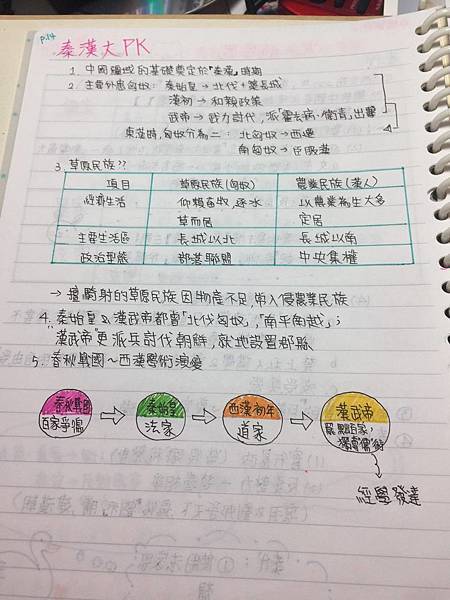 p.14
秦漢大PK
1. 中國疆域的基礎奠定於「秦漢」時期
2. 主要外患匈奴: 秦始皇→北伐,築長城
漢初→和親政策
武帝→武力討伐,派「霍去病、衛青」出擊
東漢時,匈奴分為二: 北匈奴→西遷
南匈奴→臣服漢
3. 草原民族??
項目 草原民族(匈奴) 農業民族(漢人)
經濟生活 仰賴畜牧,逐水草而居 以農業為生大多定居
主要生活區 長城以北 長城以南
政治型態 部落聯盟 中央集權
→擅騎射的草原民族因物產不足,常入侵農業民族
4. 秦始皇&漢武帝都曾「北伐匈奴」,「南平南越」;
漢武帝更派兵討伐朝鮮,就地設置郡縣
5. 春秋戰國~西漢學術演變
春秋戰國 百家爭鳴
秦始皇 法家
西漢初年 道家
漢武帝 罷黜百家,獨尊儒術
經學發達